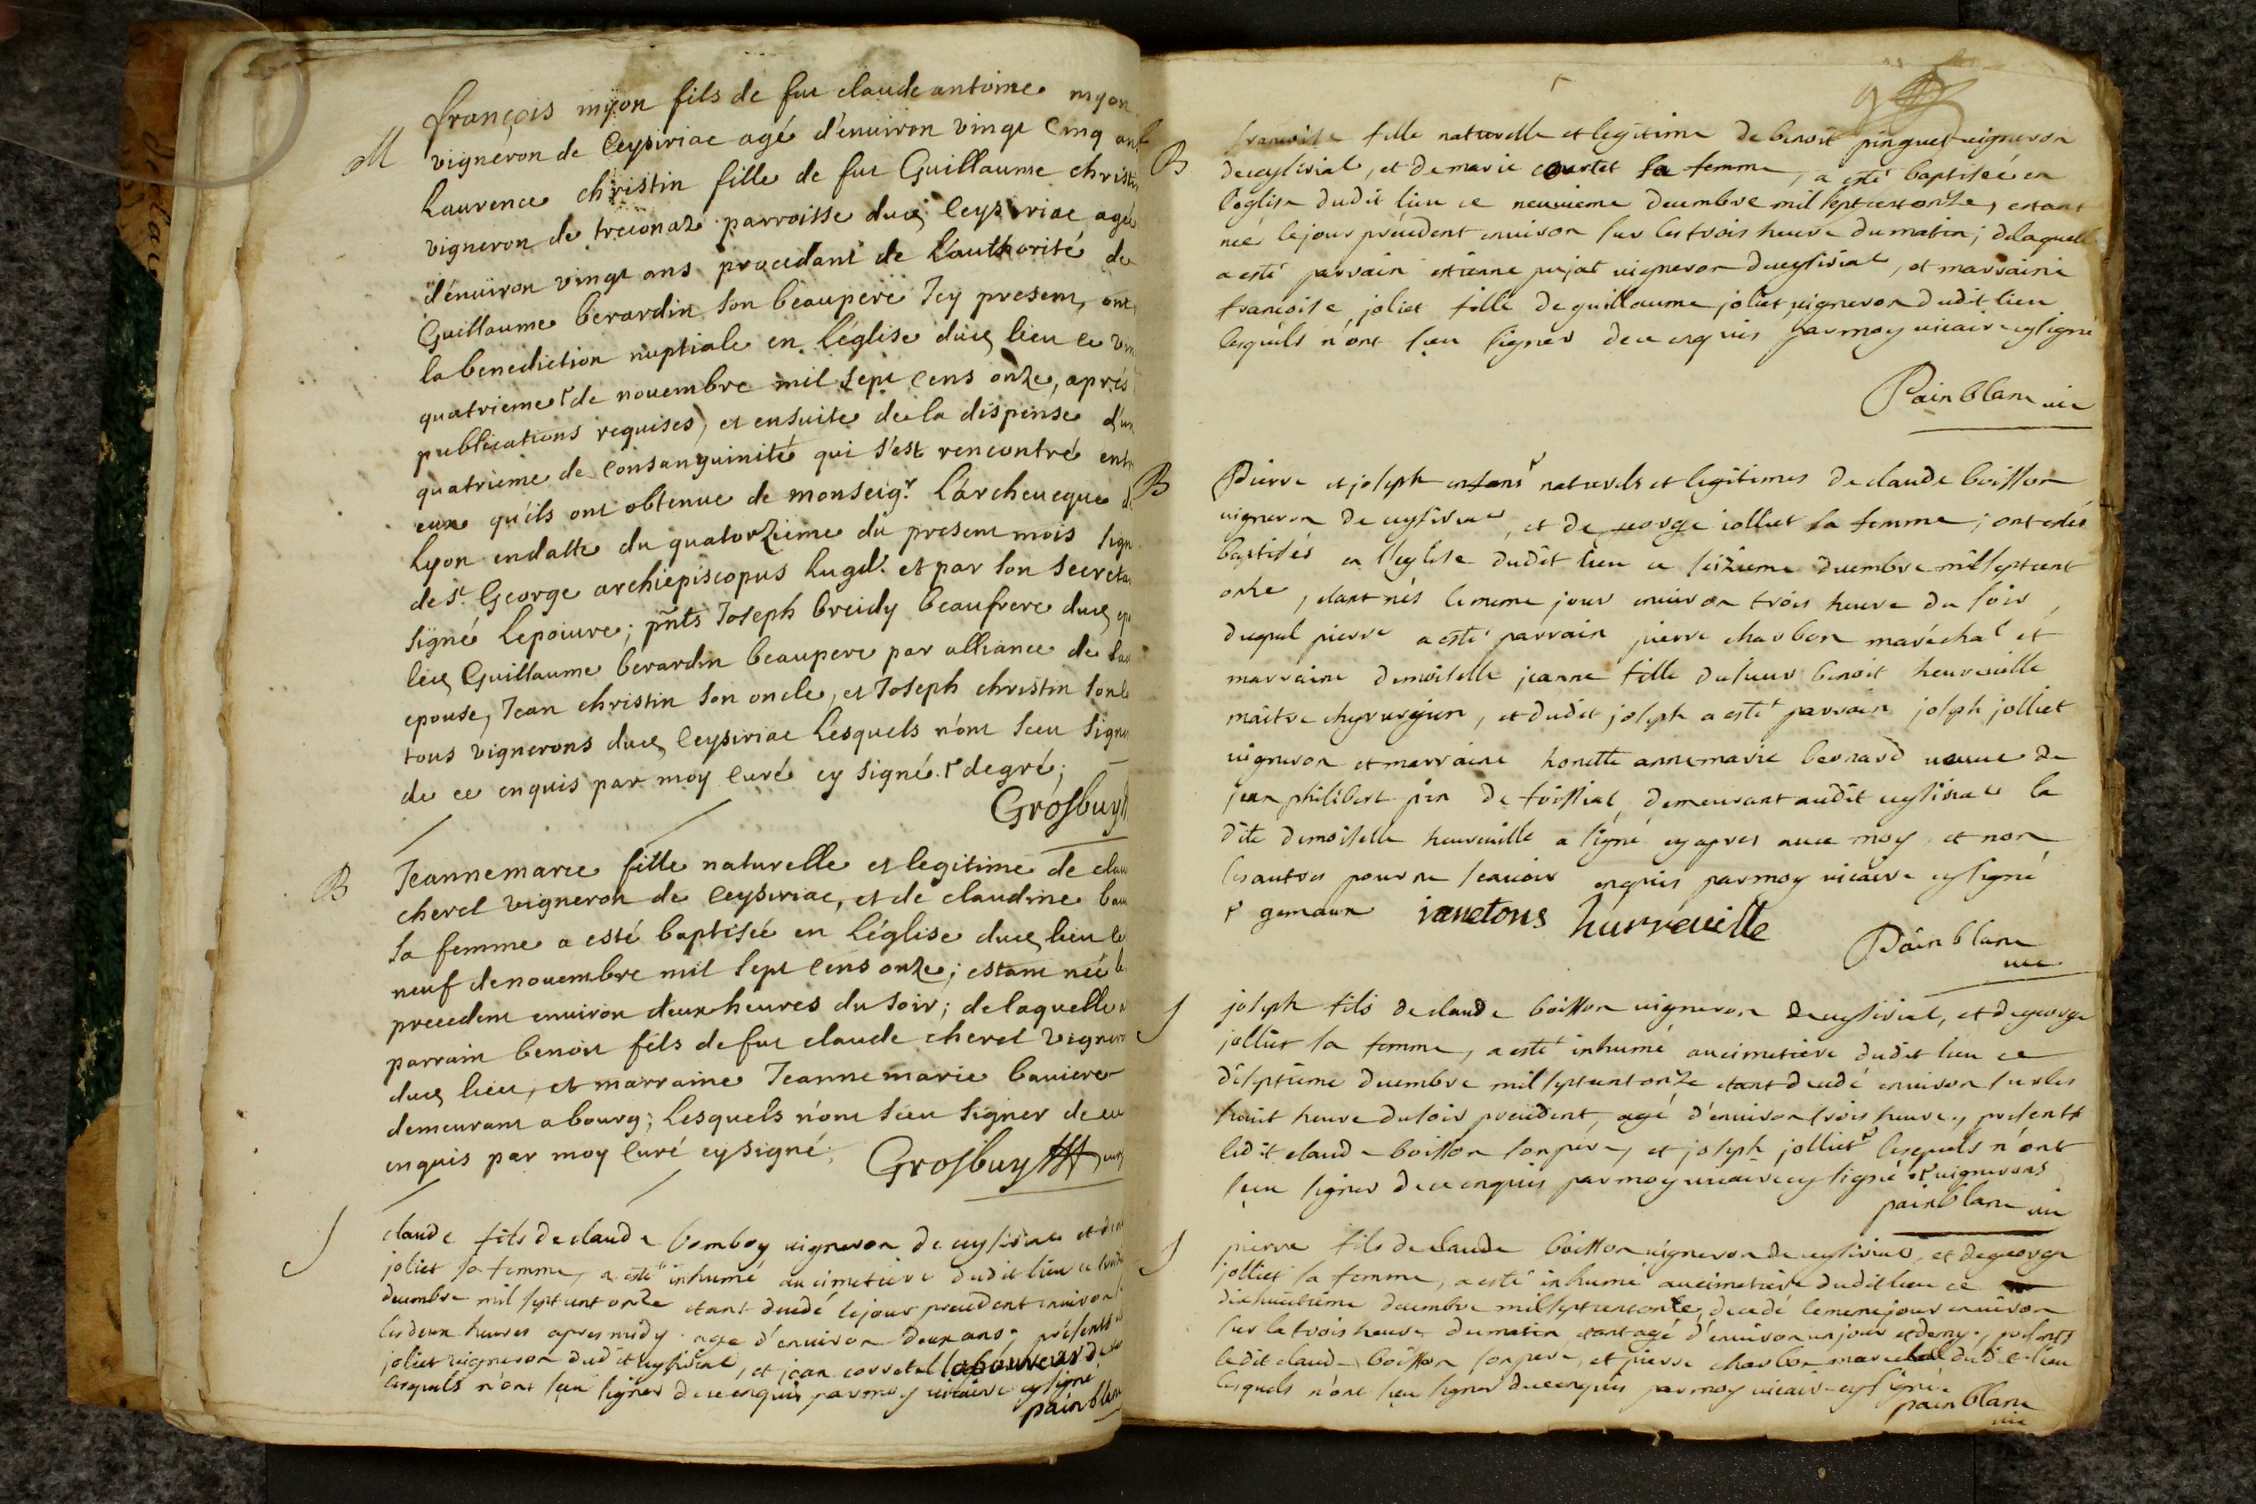 françois myon fils de fut claude antoine myon
M
vigneron de Ceyseriac agé d'enuiron vingt cinq ans
Laurence christin fille de fut Guillaume christin
vigneron de treconaz parroisse dud Ceyseriac agée
d'enuiron vingt ans procedant de L'authorité de
Guillaume berardin son beaupere Icy present, ont
la benediction nuptiale en L'église dud lieu ce vin
quatrieme de nouembre mil sept cens onze, aprés
publications requises, et ensuite de la dispense d'un
quatrieme de consanguinité qui s'est rencontré entr
eux qu'ils ont obtenue de monseigr. L'archeueque de
Lyon endatte du quatorzieme du present mois sign
de st. George archiepiscopus Lugd. et par son secreta
signé Lepoiure; pnts Joseph breidy beaufrere dud epo
led Guillaume berardin beaupere par alliance de lad
epouse, Jean christin son oncle, et Joseph christin son
tous vignerons dud Ceyseriac Lesquels n'ont sceu signer
de ce enquis par moy curé cy signé. degré;
Grosbuy
B
Jeannemarie fille naturelle et legitime de clau
cherel vigneron de Ceyseriac, et de claudine bau
sa femme a esté baptisée en L'église dud lieu le
neuf denouembre mil sept cens onze; estant née le
precedent enuiron deux heures du soir; de laquelle a
parrain benoit fils de fut claude cherel vigneron
dud lieu, et marraine Jeannemarie bauiere
demeurant a bourg; Lesquels n'ont sceu signer de ce
enquis par moy curé cysigné.
Grosbuy curé
S
claude fils de claude bomboy uigneron de ceyseriat et de
joliet sa femme, a esté inhumé au cimetiere dudit lieu ce
decembre mil sept cent onze etant decedé lejour precedent enuiron
les deux heures apres midy agé d'enuiron deux ans; présents
joliet uigneron dudit ceyseriat, et jean corratel laboureur d
lesquels n'ont sceu signer dece enquis par moy uicaire cysigné
painblanc
B
françoise fille naturelle et legitime de benoit pinguet uigneron
deceyseriat, et de marie courtet sa femme, a esté baptisée en
l'église dudit lieu ce neuuieme decembre mil septcent onze, estant
née lejour précedent enuiron sur les trois heure dumatin; delaquelle
a esté parrain estienne pujat uigneron deceyseriat, et marraine
francoise joliet fille de guillaume joliet uigneron dudit lieu
lesquels n'ont sceu signer dece enquis par moy uicaire cysigné
Painblanc uic
B
Pierre et joseph enfans naturels et legitimes de claude boisson
uigneron de ceyseriat, et de george jolliet sa femme; ont estés
baptisés en l'eglise dudit lieu ce seizieme decembre mil septcent
onze, etant nés lememe jour enuiron trois heure du soir,
duquel pierre a esté parrain pierre charbon maréchal et
marraine demoiselle jeanne fille dusieur benoit heureuille
maitre chyrurgien, et dudit joseph a esté parrain joseph jolliet
uigneron et marraine honette annemarie bernard ueuue de
jean philibert pin de toissiat demeurant audit ceyseriat la
dite demoiselle heureuille a signé cyapres auec moy et non
les autres pour ne scauoir enquis par moy uicaire cysigné
gemaux
ianetons hurreuille
Painblanc
uic
S
joseph fils declaude boisson uigneron deceyseriat, et degeorge
jolliet sa femme, a esté inhumé aucimetiere dudit lieu ce
diseptieme decembre mil septcent onze etant decedé enuiron sur les
huit heure dusoir precedent, agé d'enuiron trois heure, présents
ledit claude boisson son père, et joseph jolliet lesquels n'ont
sceu signer dece enquis par moy uicaire cysigné uignerons
painblanc uic
S
pierre fils declaude boisson uigneron deceyseriat, et degeorge
jolliet sa femme, a esté inhumé aucimetiere dudit lieu ce
dixhuitieme decembre mil septcent onze, decedé lememejour enuiron
sur la trois heure dumatin etant agé d'enuiron un jour et demy, présents
ledit claude boisson son pere, et pierre charbon marechal dudit lieu
lesquels n'ont sceu signer dece enquis par moy uicaire cysigné.
painblanc
uic